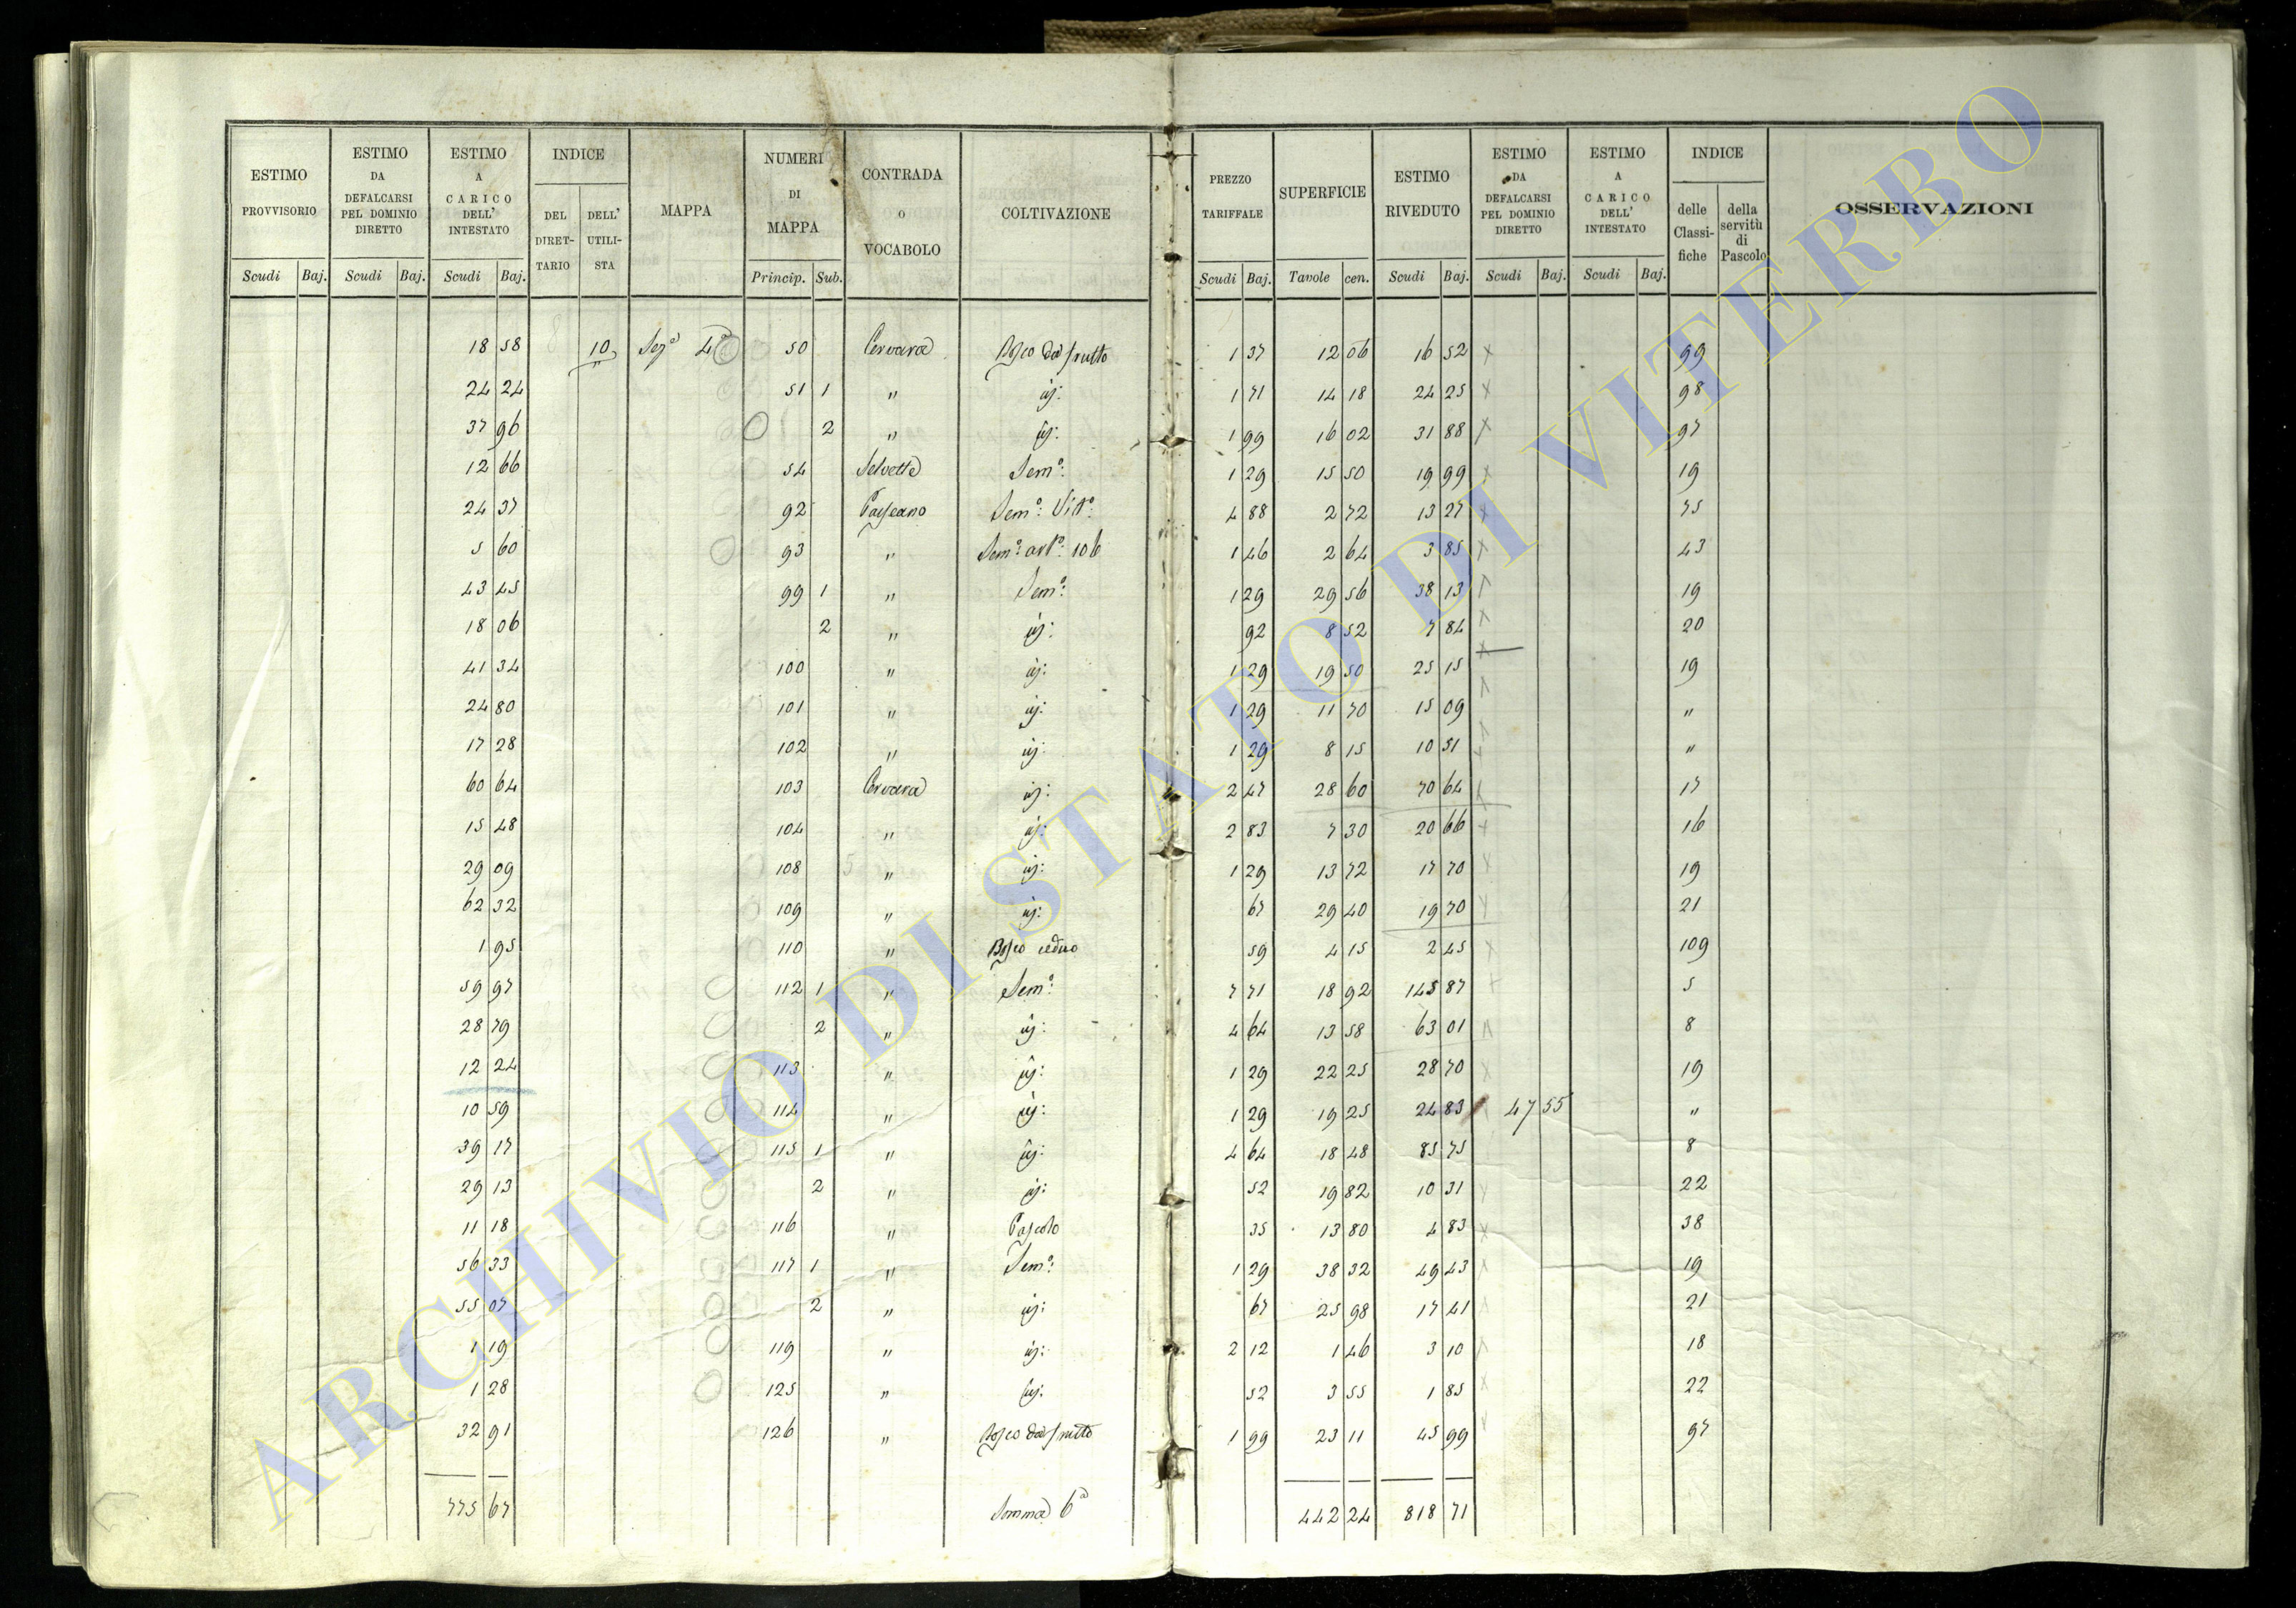 ESTIMO PROVVISORIO | ESTIMO DA DEFALCARSI PEL DOMINIO DIRETTO | ESTIMO A CARICO DELL' INTESTATO | INDICE DEL DIRETTARIO | DELL' UTILISTA | MAPPA | NUMERI DI MAPPA | CONTRADA O VOCABOLO | COLTIVAZIONE | PREZZO TARIFFALE | SUPERFICIE | ESTIMO RIVEDUTO | ESTIMO DA DEFALCARSI PEL DOMINIO DIRETTO | ESTIMO A CARICO DELL' INTESTATO | INDICE delle Classifiche | della servitù di Pascolo | OSSERVAZIONI
Scudi Baj. | Scudi Baj. | Scudi Baj. | Princip. Sub. | Scudi Baj. | Tavole cen. | Scudi Baj. | Scudi Baj. | Scudi Baj.
18 58 10 Sez.e 4a 50 Cervara Bosco da frutto 1 37 12 06 16 52 99
24 24 51 1 " id: 1 71 14 18 24 25 98
37 96 2 " id: 1 99 16 02 31 88 97
12 66 54 Selvette Sem.o: 1 29 15 50 19 99 19
24 37 92 Sem.o: Vit.o: 4 88 2 72 13 27 75
5 60 93 " 1 46 2 64 3 85 43
43 45 99 1 " Sem.o: 1 29 29 56 38 13 19
18 06 2 " id: 92 8 52 7 84 20
41 34 100 " id: 1 29 19 50 25 15 19
24 80 101 " id: 1 29 11 70 15 09 "
17 28 102 " id: 1 29 8 15 10 51 "
60 64 103 Cervara id: 2 47 28 60 70 64 17
15 48 104 " id: 2 83 7 30 20 66 16
29 09 108 " id: 1 29 13 72 17 70 19
62 32 109 " id: 67 29 40 19 70 21
1 95 110 " Bosco ceduo 59 4 15 2 45 109
59 97 112 1 " Sem.o: 7 71 18 92 145 87 5
28 79 2 " id: 4 64 13 58 63 01 8
12 24 113 " id: 1 29 22 25 28 70 19
10 59 114 " id: 1 29 19 25 24 83 47 55 "
39 17 115 1 " id: 4 64 18 48 85 75 8
29 13 2 " id: 52 19 82 10 31 22
11 18 116 " Pascolo 35 13 80 4 83 38
56 33 117 1 " Sem.o: 1 29 38 32 49 43 19
55 07 2 " id: 67 25 98 17 41 21
1 19 119 " id: 2 12 1 46 3 10 18
1 28 125 " id: 52 3 55 1 85 22
32 91 126 " Bosco da frutto 1 99 23 11 45 99 97
775 67 Somma 6a 442 24 818 71
ARCHIVIO DI STATO DI VITERBO